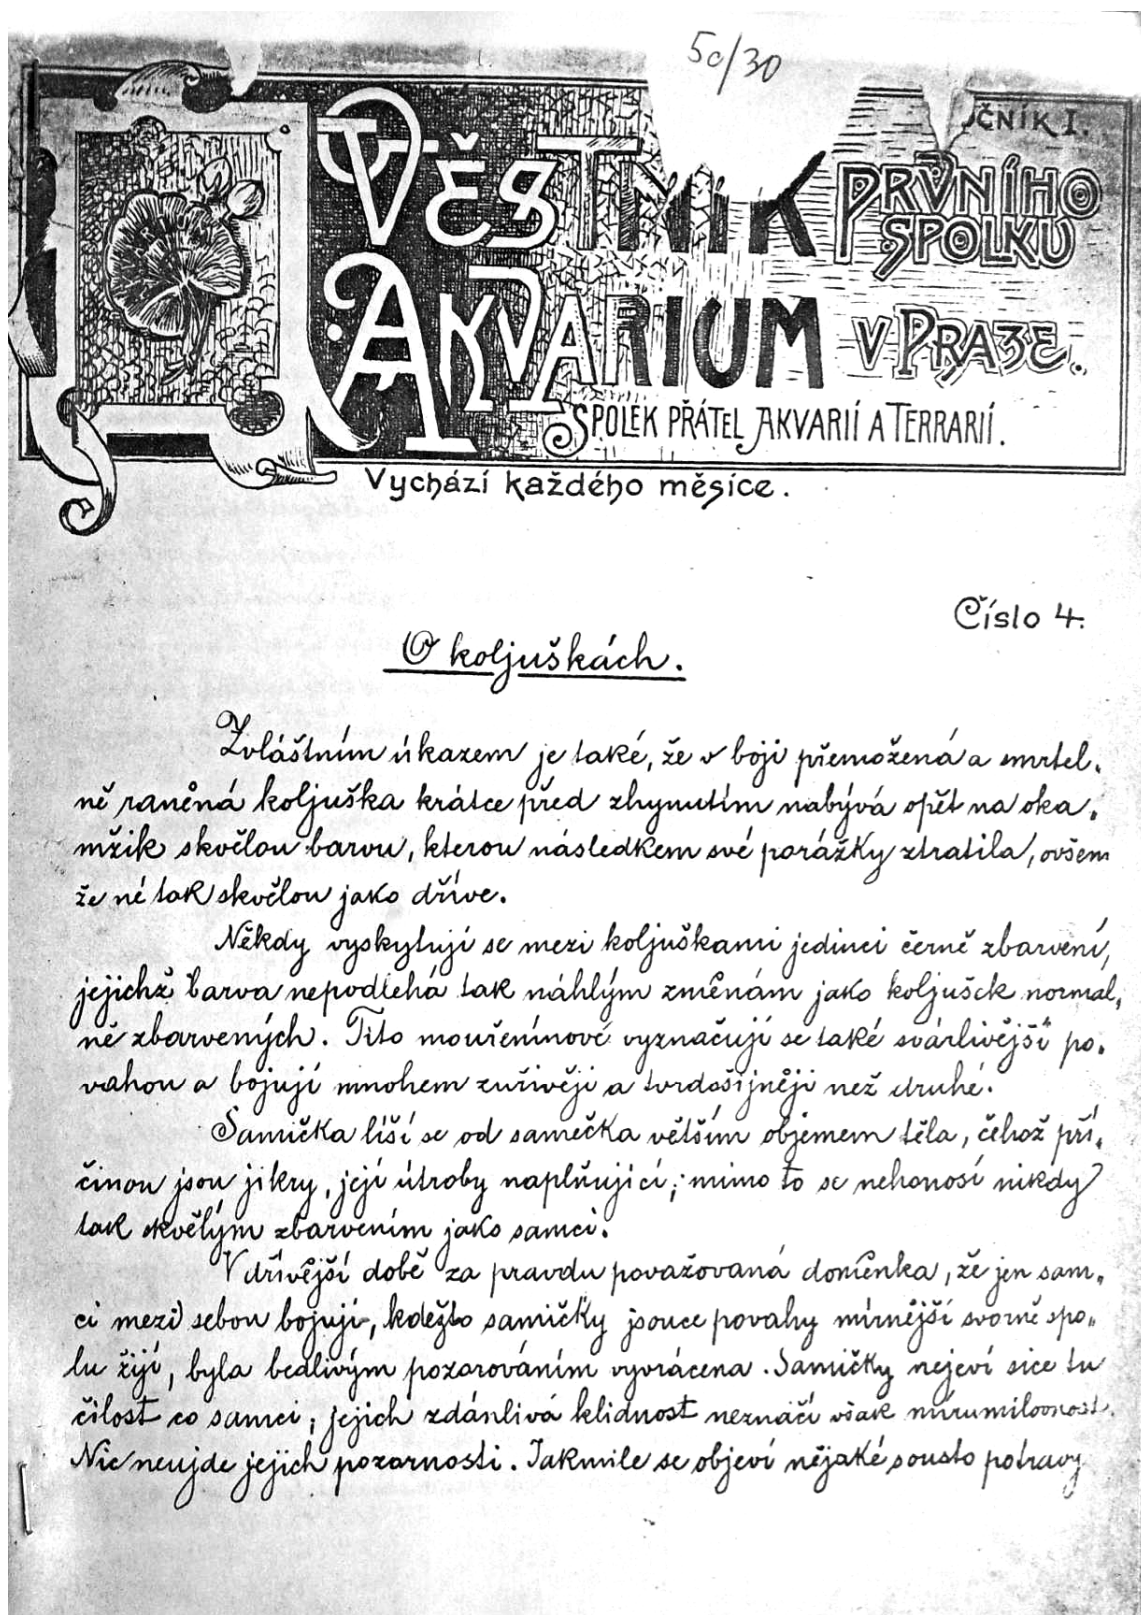 50/30
ČNÍK I.
VĚSTNÍK PRVNÍHO
SPOLKU
AKVARIUM V PRAZE.
SPOLEK PŘÁTEL AKVARIÍ A TERRARIÍ.
Vychází každého měsíce.
Číslo 4.
O koljuškách.
Zvláštním úkazem je také, že v boji přemožená a smrtel-
ně raněná koljuška krátce před zhynutím nabývá opět na oka-
mžik skvělou barvu, kterou následkem své porážky ztratila, ovšem
že né tak skvělou jako dříve.
Někdy vyskytují se mezi koljuškami jedinci černě zbarvení,
jejichž barva nepodléhá tak náhlým změnám jako koljušek normal-
ně zbarvených. Tito mouřenínové vyznačují se také svárlivější po-
vahou a bojují mnohem zuřivěji a tvrdošijněji než druhé.
Samička líší se od samečka větším objemem těla, čehož pří-
činou jsou jikry, její útroby naplňující; mimo to se nehonosí nikdy
tak skvělým zbarvením jako samci.
V dřívější době za pravdu považovaná doměnka, že jen sam-
ci mezi sebou bojují, kdežto samičky jsouce povahy mírnější svorně spo-
lu žijí, byla bedlivým pozorováním vyvrácena. Samičky nejeví sice tu
čilost co samci; jejich zdánlivá klidnost neznačí však mírumilovnost.
Nic neujde jejich pozornosti. Jakmile se objeví nějaké sousto potravy